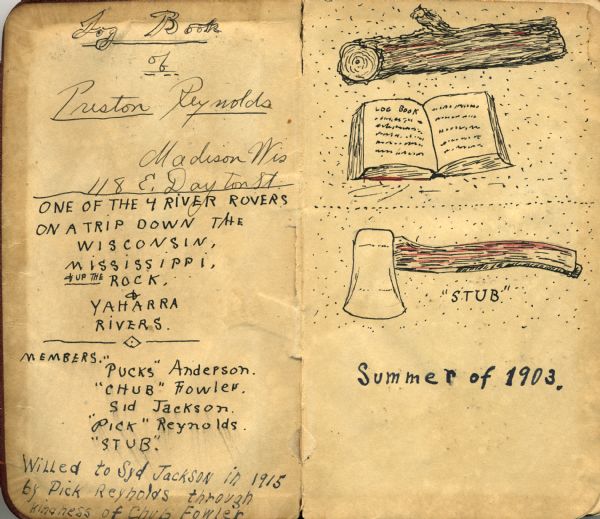 Log Book
of
Preston Reynolds
Madison Wis
118 E. Dayton St.
ONE OF THE 4 RIVER ROVERS
ON A TRIP DOWN THE
WISCONSIN,
MISSISSIPPI,
& UP THE ROCK,
&
YAHARRA
RIVERS.
MEMBERS.
"PUCKS" Anderson.
"CHUB" Fowler.
Sid Jackson.
"PICK" Reynolds.
"STUB".
Willed to Syd Jackson in 1915
by Pick Reynolds through
kindness of Chub Fowler
LOG BOOK
"STUB"
Summer of 1903.